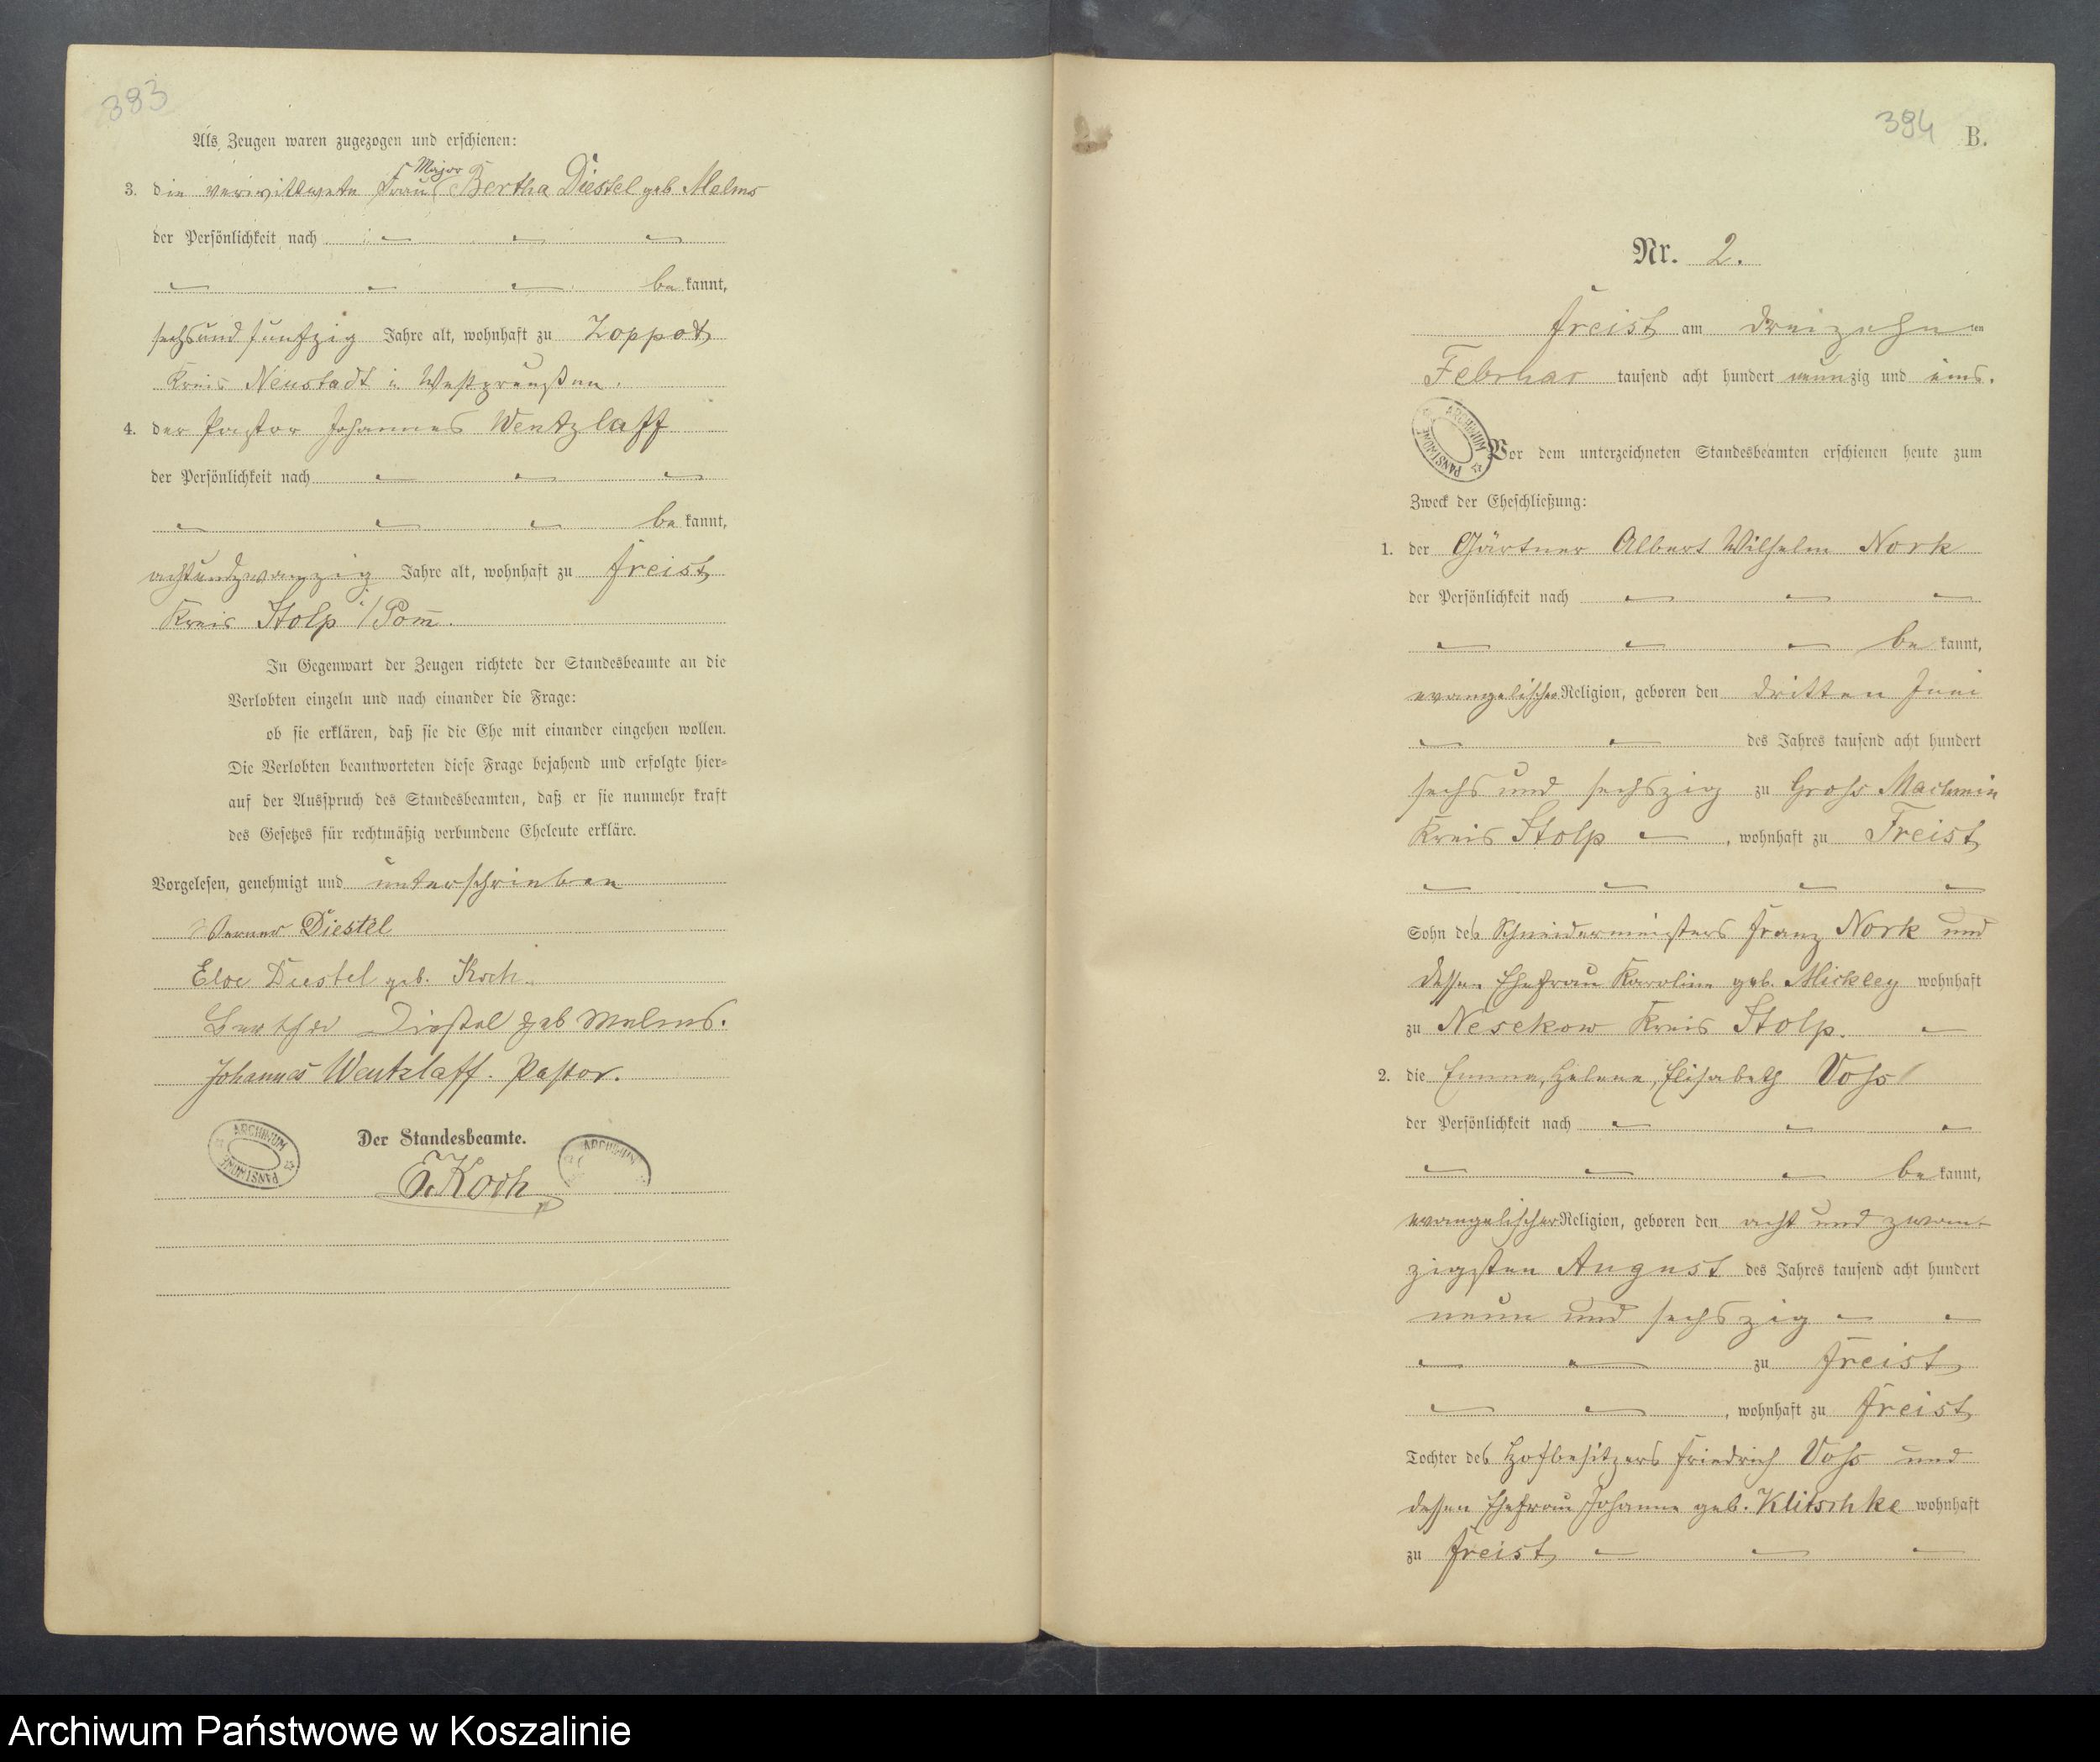 383
Als Zeugen waren zugezogen und erschienen:
Major
3. die verwittwete Frau Bertha Diestel geb. Melms
der Persönlichkeit nach
be kannt,
sechsundfunfzig Jahre alt, wohnhaft zu Zoppot
Kreis Neustadt in Westpreußen.
4. der Pastor Johannes Wentzlaff
der Persönlichkeit nach
be kannt,
achtundzwanzig Jahre alt, wohnhaft zu Freist
Kreis Stolp i/Pom̅.
In Gegenwart der Zeugen richtete der Standesbeamte an die
Verlobten einzeln und nach einander die Frage:
ob sie erklären, daß sie die Ehe mit einander eingehen wollen.
Die Verlobten beantworteten diese Frage bejahend und erfolgte hier=
auf der Ausspruch des Standesbeamten, daß er sie nunmehr kraft
des Gesetzes für rechtmäßig verbundene Eheleute erkläre.
Vorgelesen, genehmigt und unterschrieben
Werner Diestel
Eloe Diestel geb. Koch.
Bertha Diestel geb Melms.
Johannes Wentzlaff. Pastor.
ARCHIWUM PAŃSTWOWE
Der Standesbeamte.
ARCHIWUM
Koch
394 B.
Nr. 2.
Freist am dreizehn ten
Februar tausend acht hundert neunzig und eins.
ARCHIWUM PAŃSTWOWE
Vor dem unterzeichneten Standesbeamten erschienen heute zum
Zweck der Eheschließung:
1. der Gärtner Albert Wilhelm Nork
der Persönlichkeit nach
be kannt,
evangelischer Religion, geboren den dritten Juni
des Jahres tausend acht hundert
sechs und sechszig zu Gross Machmin
Kreis Stolp, wohnhaft zu Freist
Sohn des Schneidermeisters Franz Nork und
dessen Ehefrau Karoline geb. Mickley wohnhaft
zu Nesekow Kreis Stolp.
2. die Emma, Helene, Elisabeth Voss
der Persönlichkeit nach
be kannt,
evangelischer Religion, geboren den acht und zwan-
zigsten August des Jahres tausend acht hundert
neun und sechszig
zu Freist
, wohnhaft zu Freist
Tochter des Hofbesitzers Friedrich Voss und
dessen Ehefrau Johanne geb. Klitschke wohnhaft
zu Freist
Archiwum Państwowe w Koszalinie